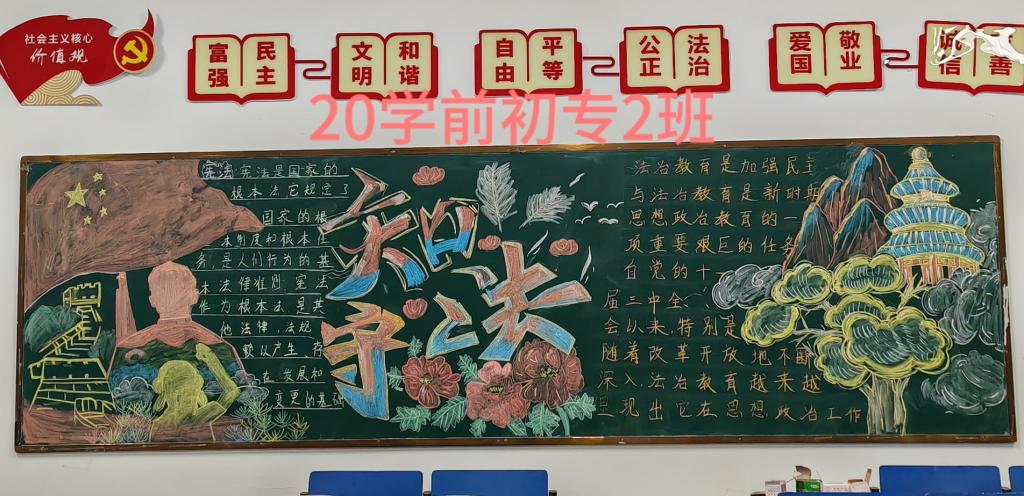 社会主义核心
价值观
富强
民主
文明
和谐
自由
平等
公正
法治
爱国
敬业
诚信
善
20学前初专2班
宪法 宪法是国家的
根本法它规定了
国家的根
本制度和根本任
务,是人们行为的基
本法律准则.宪法
作为根本法是其
他法律、法规
赖以产生、存
在发展和
变更的基础
知
宇
法
法治教育是加强民主
与法治教育是新时期
思想政治教育的一
项重要艰巨的任务
自觉的十一
届三中全
会以来,特别是
随着改革开放地不断
深入,法治教育越来越
呈现出它在思想政治工作